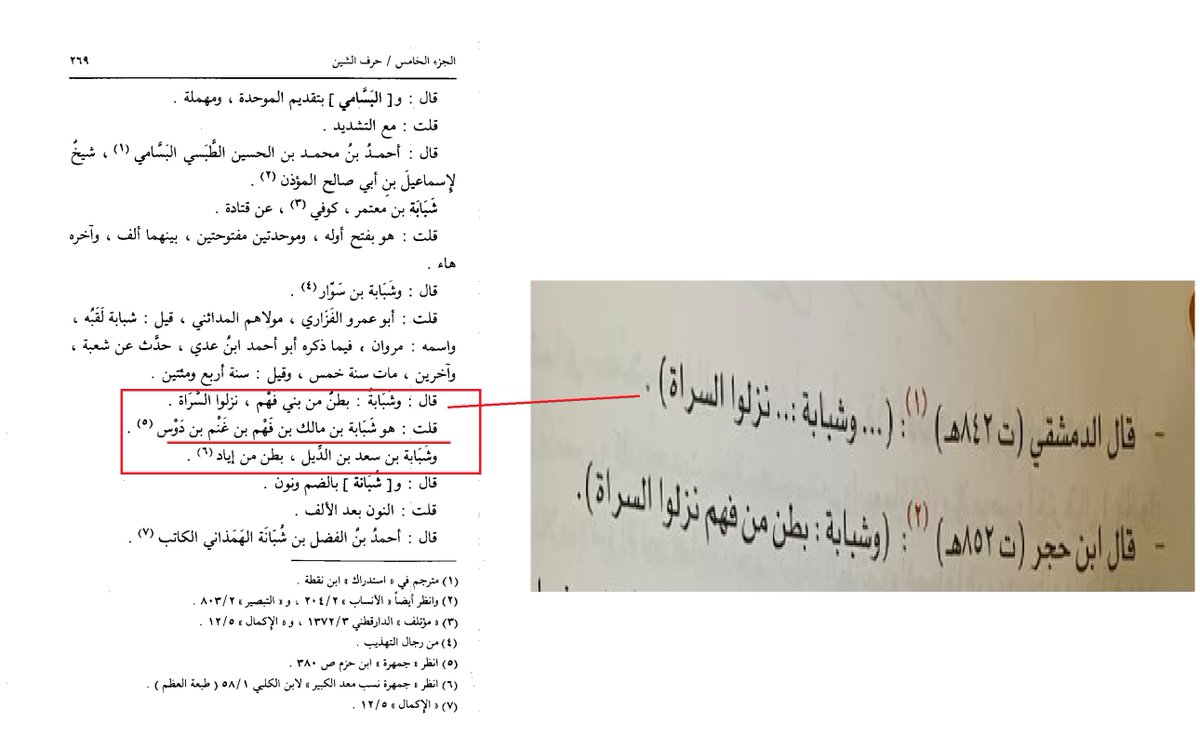 الجزء الخامس / حرف الشين ٢٦٩
قال : و[ البَسَّامي ] بتقديم الموحدة ، ومهملة .
قلت : مع التشديد .
قال : أحمدُ بنُ محمد بن الحسين الطَّبَسي البَسَّامي (١) ، شيخُ
لإِسماعيلَ بنِ أبي صالح المؤذن (٢) .
شَبَابَة بن معتمر ، كوفي (٣) ، عن قتادة .
قلت : هو بفتح أوله ، وموحدتين مفتوحتين ، بينهما ألف ، وآخره
هاء .
قال : وشَبَابة بن سَوّار (٤) .
قلت : أبو عمرو الفَزَاري ، مولاهم المدائني ، قيل : شبابة لَقَبُه ،
واسمه : مروان ، فيما ذكره أبو أحمد ابنُ عدي ، حدَّث عن شعبة ،
وآخرين ، مات سنة خمس ، وقيل : سنة أربع ومئتين .
قال : وشَبَابةُ : بطنٌ من بني فَهْم ، نزلوا السَّرَاة .
قلت : هو شَبَابة بن مالك بن فَهْم بن غَنْم بن دَوْس (٥) .
وشَبَابة بن سعد بن الدِّيل ، بطن من إياد (٦) .
قال : و[ شُبَانة ] بالضم ونون .
قلت : النون بعد الألف .
قال : أحمدُ بنُ الفضل بن شُبَانَة الهَمَذاني الكاتب (٧) .
(١) مترجم في « استدراك » ابن نقطة .
(٢) وانظر أيضاً « الأنساب » ٢٠٤/٢ ، و « التبصير » ٨٠٣/٢ .
(٣) « مؤتلف » الدارقطني ١٣٧٢/٣ ، و « الإكمال » ١٢/٥ .
(٤) من رجال التهذيب .
(٥) انظر « جمهرة » ابن حزم ص ٣٨٠ .
(٦) انظر « جمهرة نسب معد الكبير » لابن الكلبي ٥٨/١ ( طبعة العظم ) .
(٧) « الإكمال » ١٢/٥ .
- قال الدمشقي (ت ٨٤٢هـ) (١) : (... وشبابة :.. نزلوا السراة) .
- قال ابن حجر (ت ٨٥٢هـ) (٢) : (وشبابة : بطن من فهم نزلوا السراة).